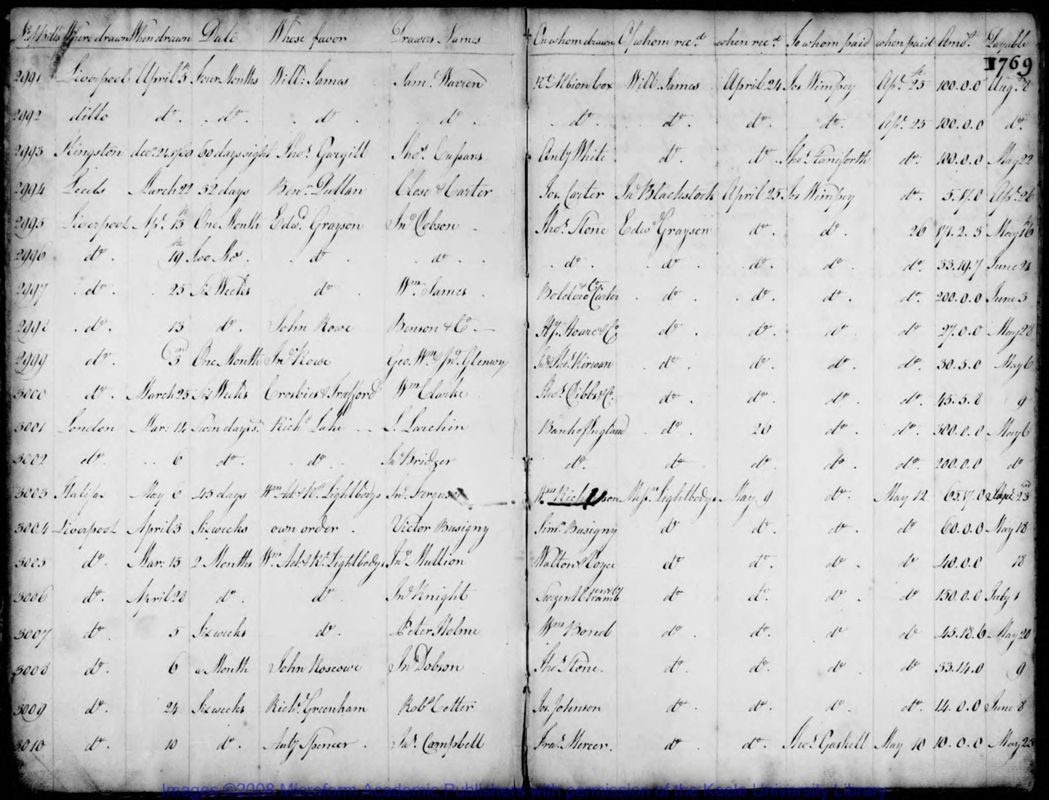 No. of Bills Where drawn When drawn Date Whose favor Drawers Names On whom drawn Of whom rec.d when rec.d To whom paid when paid Amo.t Payable
1769
2991 Liverpool April 5 Four Months Will: James Sam.l Warren Albion Cox Will: James April 24 Jos Wimpey Ap.l 25 100.0.0 Aug.t 8
2992 ditto do. do. do. do. do. do. do. do. Ap.l 25 100.0.0 do.
2993 Kingston 60 days sight Tho.s Gargill Tho.s Cussans Anty White do. do. Tho.s do. 100.0.0 May 22
2994 Leeds March 22 32 days Ben: Close & Carter Jos. Carter Jn.o Blackstock April 25 Jos Wimpey do. 5.17.0 Ap.l 26
2995 Liverpool Ap.l 13 One Month Edw.d Grayson Jn.o Dobson Tho.s Stone Edw.d Grayson do. do. 26 May 16
2996 do. 19 Two Mo.s do. do. do. do. do. do. do. 33.19.7 June 21
2997 do. 25 Six Weeks do. W.m James do. do. do. do. 200.0.0 June 3
2998 do. 13 do. John Rowe Benson & Co. Hoare & Co. do. do. do. do. 27.0.0 May 28
2999 do. 3 One Month Jn.o Rowe Geo. W.m Jn.o Kirwan do. do. do. do. 30.5.0 May 6
3000 do. March 25 Six Weeks Crosbies & Trafford W.m Clarke Tho.s Gibbs & Co. do. do. do. do. 45.5.8 9
3001 London Mar: 14 Rich.d Lake Larchin Bank of England do. 26 do. do. 300.0.0 May 6
3002 do. 6 do. do. Jn.o Bridger do. do. do. do. do. 200.0.0 do.
3003 Halifax May 6 45 days W.m Ad. & R.t Lightbodys Jn.o Ferguson W.m Richardson Mess.rs Lightbodys May 9 do. May 12 23
3004 Liverpool April 3 Six weeks own order Victor Busigny Busigny do. do. do. do. 60.0.0 May 18
3005 do. Mar: 15 2 Months W.m Ad. & R.t Lightbodys Jn.o Mullion Walton & do. do. do. do. 40.0.0 18
3006 do. April 28 do. do. Jn.o Knight do. do. do. do. 150.0.0 July 1
3007 do. 5 Six weeks do. Peter Holme W.m Bond do. do. do. do. 45.18.6 May 20
3008 do. 6 a Month John Roscowe Jn.o Dobson Tho.s Stone. do. do. do. do. 33.14.0 9
3009 do. 24 Six weeks Rich.d Greenham Rob.t Cotter Jos. Johnson do. do. do. do. 14.0.0 June 8
3010 do. 10 do. Anty Spencer Jn.o Campbell Fra.s Mercer. do. do. Tho.s Gaskell May 10 10.0.0 May 25
Images ©2008 Microform Academic Publishers with permission of the Keele University Library